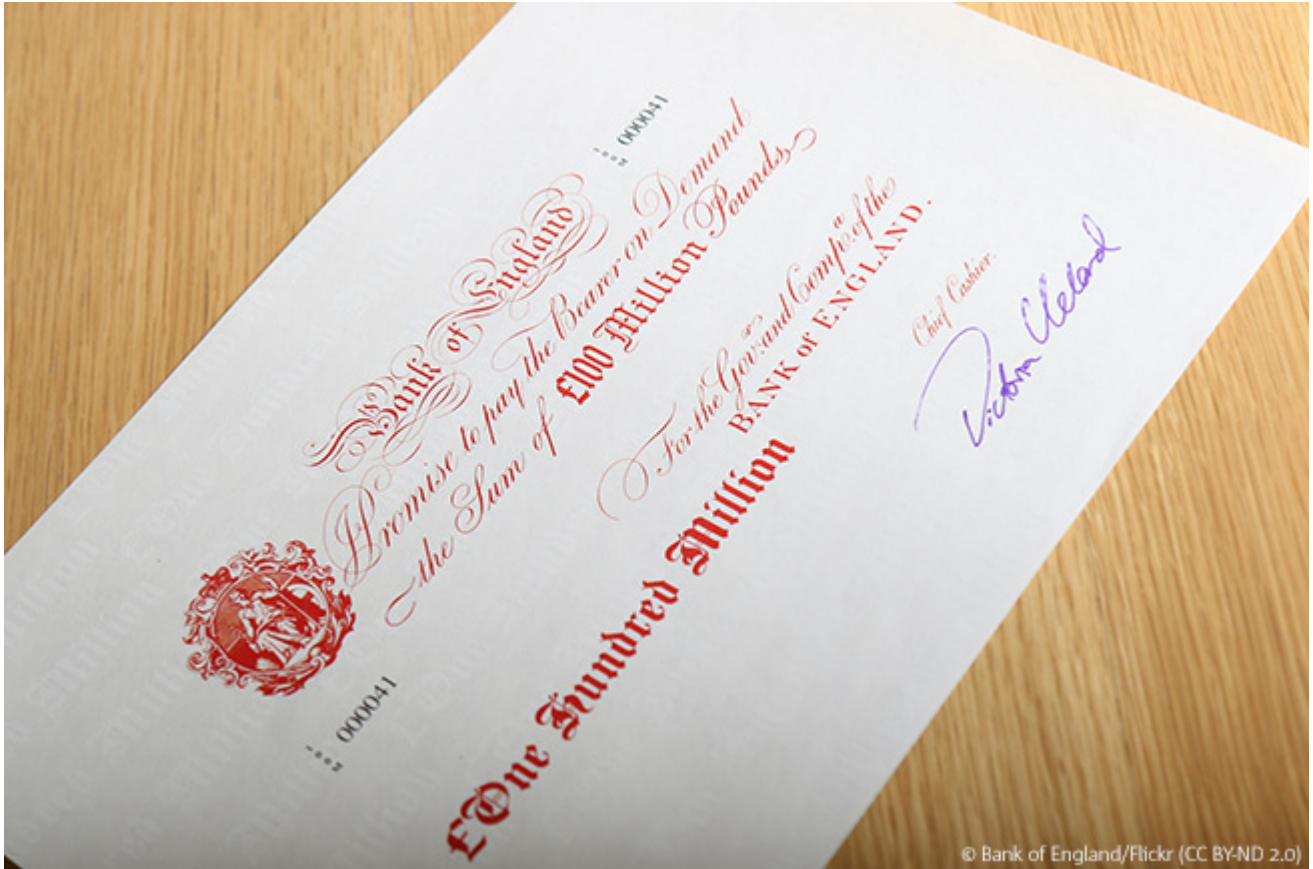 Bank of England
100M 000041
I Promise to pay the Bearer on Demand
the Sum of £100 Million Pounds
100M 000041
For the Gov.r and Comp.a of the
BANK of ENGLAND.
£One Hundred Million
Chief Cashier.
Victoria Cleland
© Bank of England/Flickr (CC BY-ND 2.0)